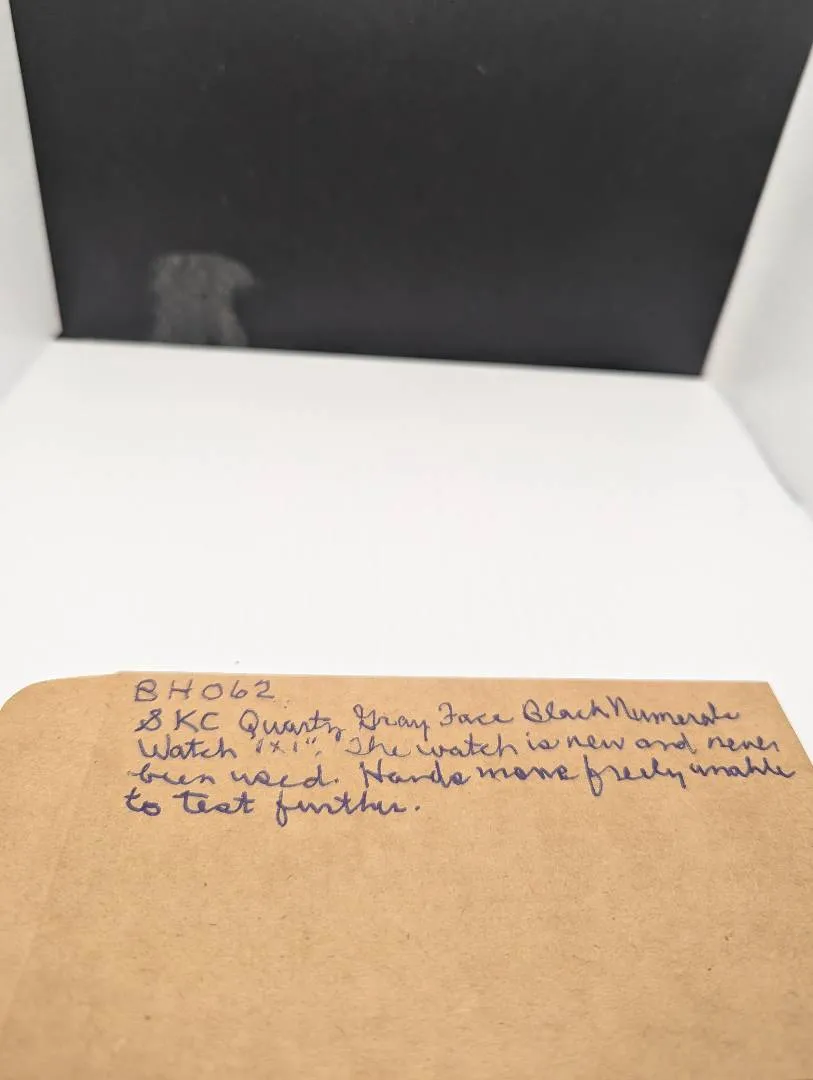 BH062
SKC Quartz Gray Face Black Numerals
Watch 1"x1". The watch is new and never
been used. Hands move freely unable
to test further.